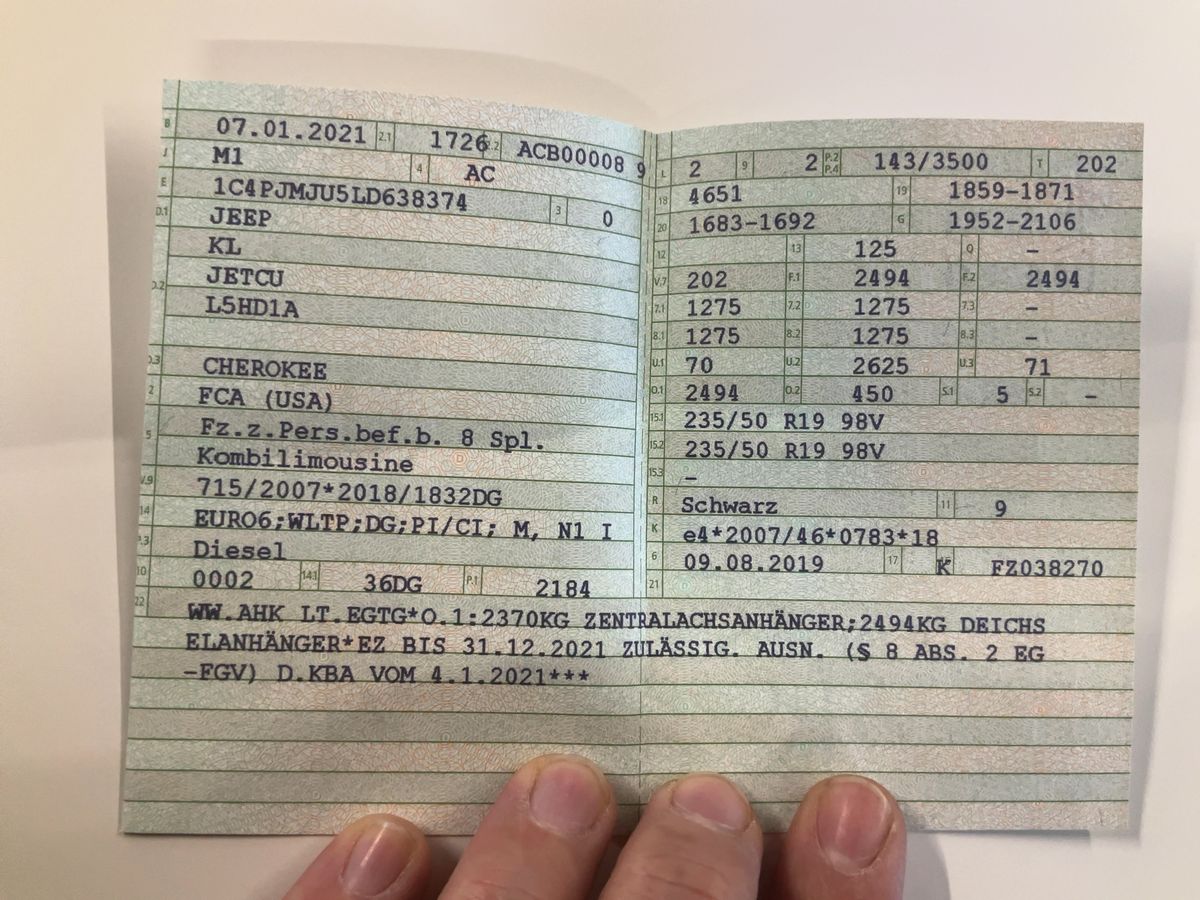 B 07.01.2021 2.1 1726 2.2 ACB00008 9
J M1 4 AC
E 1C4PJMJU5LD638374 3 0
D.1 JEEP
KL
D.2 JETCU
L5HD1A
D.3 CHEROKEE
2 FCA (USA)
Fz.z.Pers.bef.b. 8 Spl.
5 Kombilimousine
V.9 715/2007*2018/1832DG
14 EURO6;WLTP;DG;PI/CI; M, N1 I
P.3 Diesel
10 0002 14.1 36DG P.1 2184
L 2 9 2 P.2 P.4 143/3500 T 202
18 4651 19 1859-1871
20 1683-1692 G 1952-2106
12 13 125 Q -
V.7 202 F.1 2494 F.2 2494
7.1 1275 7.2 1275 7.3 -
8.1 1275 8.2 1275 8.3 -
U.1 70 U.2 2625 U.3 71
O.1 2494 O.2 450 S.1 5 S.2 -
15.1 235/50 R19 98V
15.2 235/50 R19 98V
15.3 -
R Schwarz 11 9
K e4*2007/46*0783*18
6 09.08.2019 17 K 16 FZ038270
21
22 WW.AHK LT.EGTG*O.1:2370KG ZENTRALACHSANHÄNGER;2494KG DEICHS
ELANHÄNGER*EZ BIS 31.12.2021 ZULÄSSIG. AUSN. (§ 8 ABS. 2 EG
-FGV) D.KBA VOM 4.1.2021***